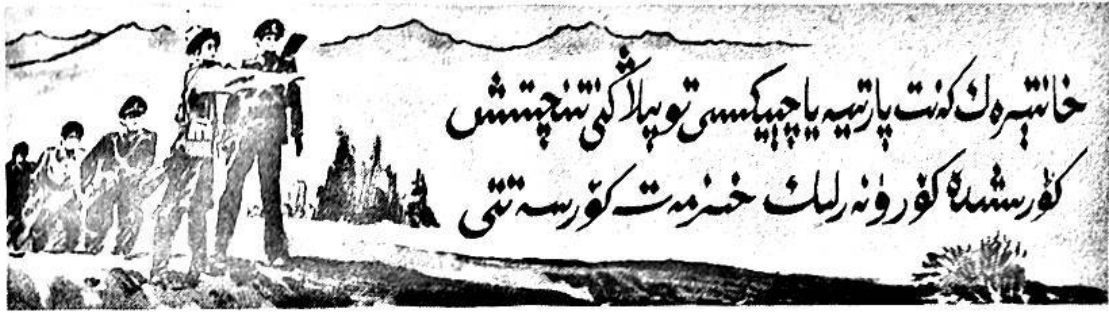 خانتېرەك كەنت پارتىيە ياچېيكىسى توپىلاڭنى تىنچىتىش
كۈرىشىدە كۆرۈنەرلىك خىزمەت كۆرسەتتى